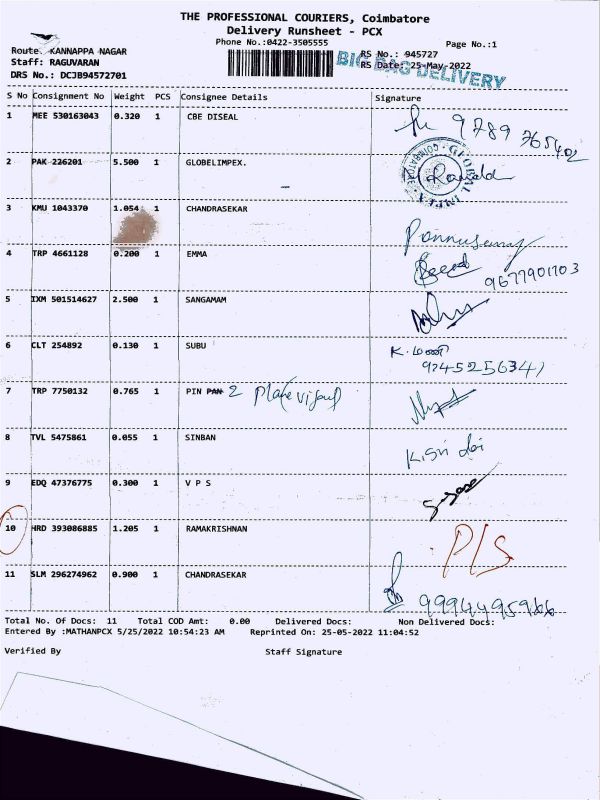 THE PROFESSIONAL COURIERS, Coimbatore
Delivery Runsheet - PCX
Phone No.:0422-3505555
Page No.:1
Route. KANNAPPA NAGAR
RS No.: 945727
Staff: RAGUVARAN
RS Date: 25-May-2022
BIG BAG DELIVERY
DRS No.: DCJB94572701
S No Consignment No Weight PCS Consignee Details Signature
1 MEE 530163043 0.320 1 CBE DISEAL 9789 765402
2 PAK 226201 5.500 1 GLOBELIMPEX.
GLOBAL IMPEX COIMBATORE
3 KMU 1043370 1.054 1 CHANDRASEKAR Ponnusamy
4 TRP 4661128 0.200 1 EMMA 9677901703
5 IXM 501514627 2.500 1 SANGAMAM
6 CLT 254892 0.130 1 SUBU K. மணி
9245256341
7 TRP 7750132 0.765 1 PIN PAN 2
8 TVL 5475861 0.055 1 SINBAN
9 EDQ 47376775 0.300 1 V P S
10 HRD 393086885 1.205 1 RAMAKRISHNAN P/S
11 SLM 296274962 0.900 1 CHANDRASEKAR 9994495966
Total No. Of Docs: 11 Total COD Amt: 0.00 Delivered Docs: Non Delivered Docs:
Entered By :MATHANPCX 5/25/2022 10:54:23 AM Reprinted On: 25-05-2022 11:04:52
Verified By Staff Signature